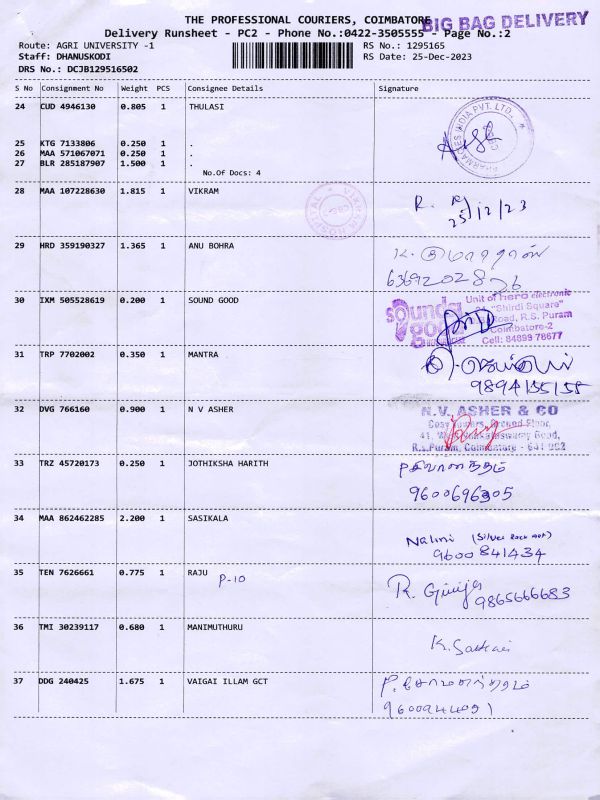 THE PROFESSIONAL COURIERS, COIMBATORE
BIG BAG DELIVERY
Delivery Runsheet - PC2 - Phone No.:0422-3505555 - Page No.:2
Route: AGRI UNIVERSITY -1
RS No.: 1295165
Staff: DHANUSKODI
RS Date: 25-Dec-2023
DRS No.: DCJB129516502
S No Consignment No Weight PCS Consignee Details Signature
24 CUD 4946130 0.805 1 THULASI
25 KTG 7133806 0.250 1 .
26 MAA 571067071 0.250 1 .
27 BLR 285187907 1.500 1 .
No.Of Docs: 4
28 MAA 107228630 1.815 1 VIKRAM
R.
25/12/23
29 HRD 359190327 1.365 1 ANU BOHRA
6369202826
30 IXM 505528619 0.200 1 SOUND GOOD
sounds good
Unit of hero electronic
"Shirdi Square"
Road, R.S. Puram
Coimbatore-2
Cell: 84899 78677
31 TRP 7702002 0.350 1 MANTRA
9894135158
32 DVG 766160 0.900 1 N V ASHER
N.V. ASHER & CO
Cosy Towers, Ground Floor,
R.S.Puram, Coimbatore - 641 002
33 TRZ 45720173 0.250 1 JOTHIKSHA HARITH
9600696905
34 MAA 862462285 2.200 1 SASIKALA
Nalini (Silver Rock apt)
9600841434
35 TEN 7626661 0.775 1 RAJU P-10
R. Girija
9865666683
36 TMI 30239117 0.680 1 MANIMUTHURU
K.
37 DDG 240425 1.675 1 VAIGAI ILLAM GCT